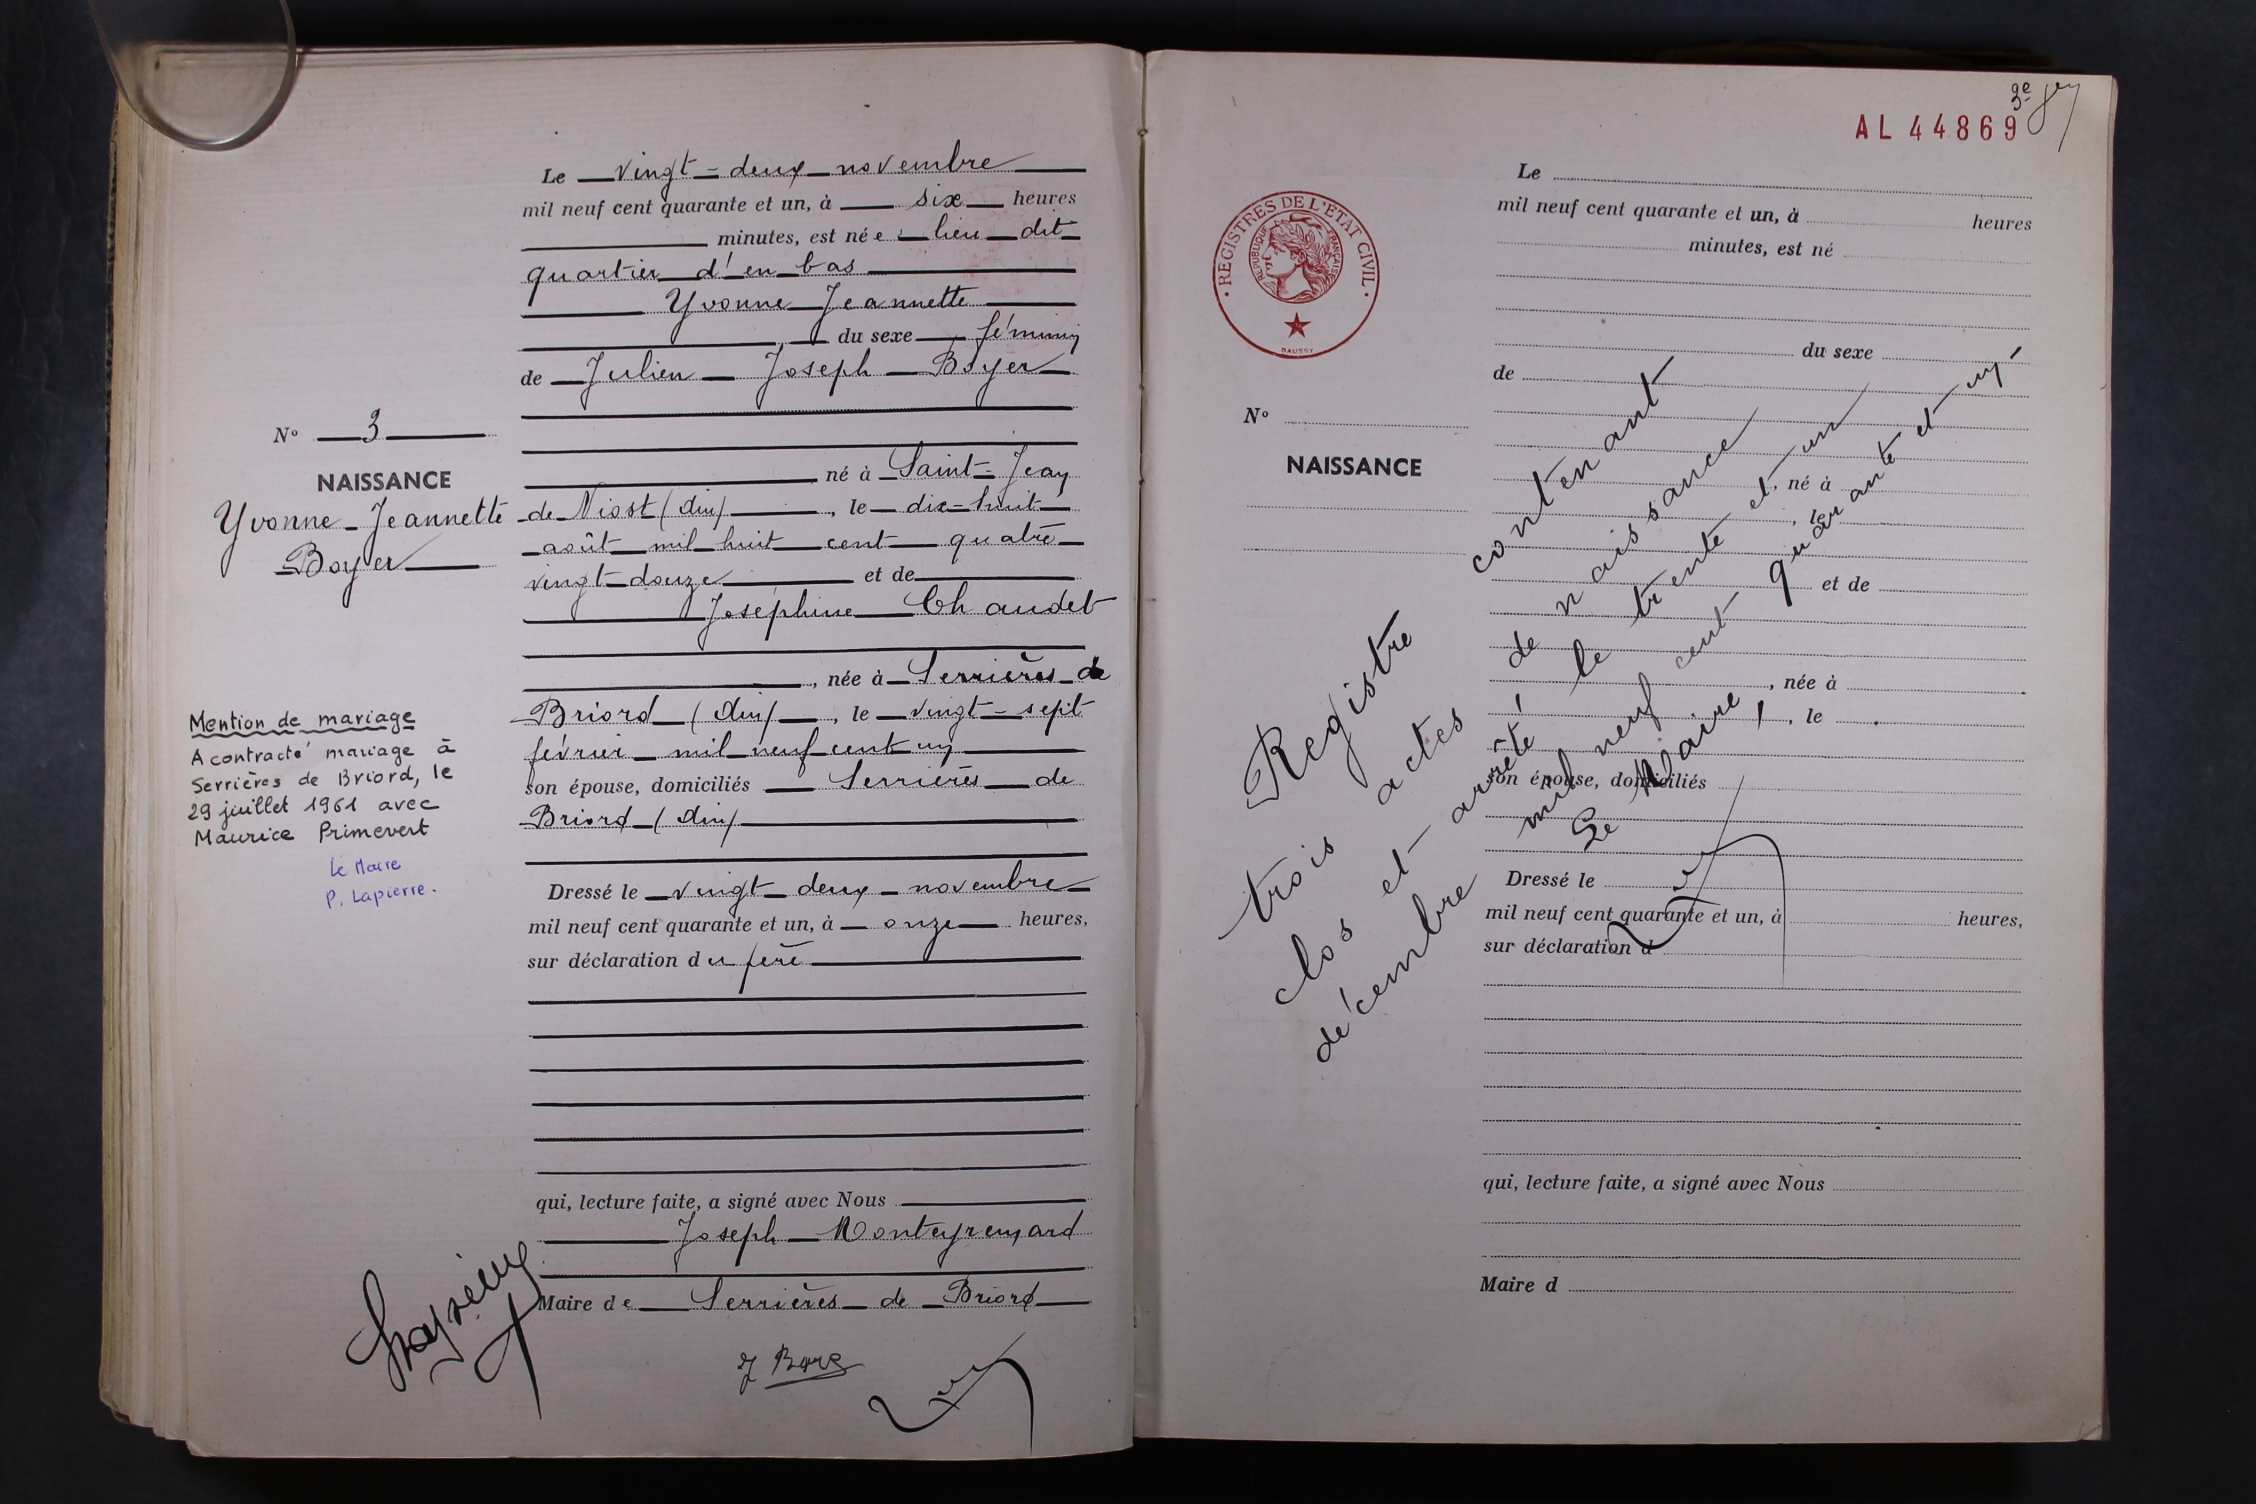 Le vingt-deux novembre
mil neuf cent quarante et un, à six heures
minutes, est née lieu dit
quartier d'en bas
Yvonne Jeannette
, du sexe féminin
de Julien Joseph Boyer
né à Saint-Jean
de Niost (Ain), le dix-huit
août mil huit cent quatre
vingt-douze et de
Joséphine Chaudet
, née à Serrières de
Briord (Ain), le vingt-sept
février mil neuf cent un
son épouse, domiciliés Serrières de
Briord (Ain)
Dressé le vingt deux novembre
mil neuf cent quarante et un, à onze heures,
sur déclaration du père
qui, lecture faite, a signé avec Nous
Joseph
Maire de Serrières de Briord
N° 3
NAISSANCE
Yvonne-Jeannette
Boyer
Mention de mariage
A contracté mariage à
Serrières de Briord, le
29 juillet 1961 avec
Maurice Primevert
Le Maire
P. Lapierre.
3e
AL 44869
REGISTRES DE L'ETAT CIVIL
REPUBLIQUE FRANÇAISE
DAUSSY
N°
NAISSANCE
Le
mil neuf cent quarante et un, à heures
minutes, est né
du sexe
de
, né à
, le
et de
, née à
, le
son épouse, domiciliés
Dressé le
mil neuf cent quarante et un, à heures,
sur déclaration d
qui, lecture faite, a signé avec Nous
Maire d
Registre contenant
trois actes de naissance
clos et arrêté le trente et un
décembre mil neuf cent quarante et un
Le Maire,